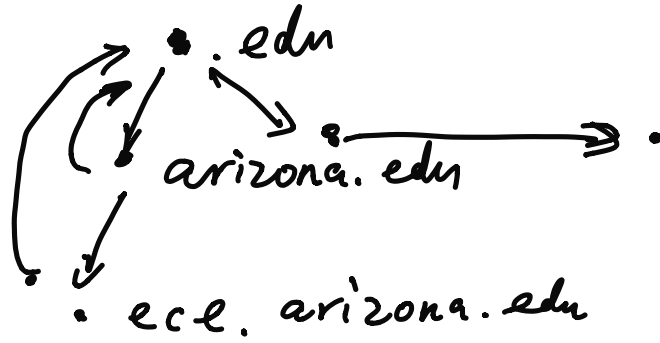 .edu
arizona.edu
ece.arizona.edu